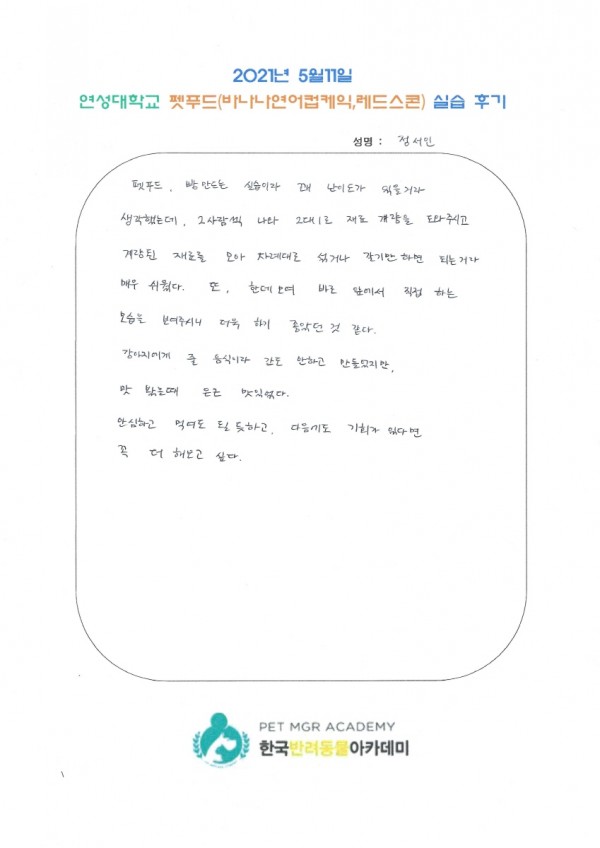 2021년 5월11일
연성대학교 펫푸드(바나나연어컵케익,레드스콘) 실습 후기
성명 : 정서인
펫푸드, 빵 만드는 실습이라 꽤 난이도가 있을거라
생각했는데, 2사람씩 나와 2대1로 재료 계량을 도와주시고
계량된 재료를 모아 차례대로 섞거나 갈기만 하면 되는거라
매우 쉬웠다. 또, 한데 모여 바로 앞에서 직접 하는
모습을 보여주시니 더욱 하기 좋았던 것 같다.
강아지에게 줄 음식이라 간도 안하고 만들었지만,
맛 봤을때 은근 맛있었다.
안심하고 먹여도 될 듯하고, 다음에도 기회가 있다면
꼭 더 해보고 싶다.
PET MGR ACADEMY
한국반려동물아카데미